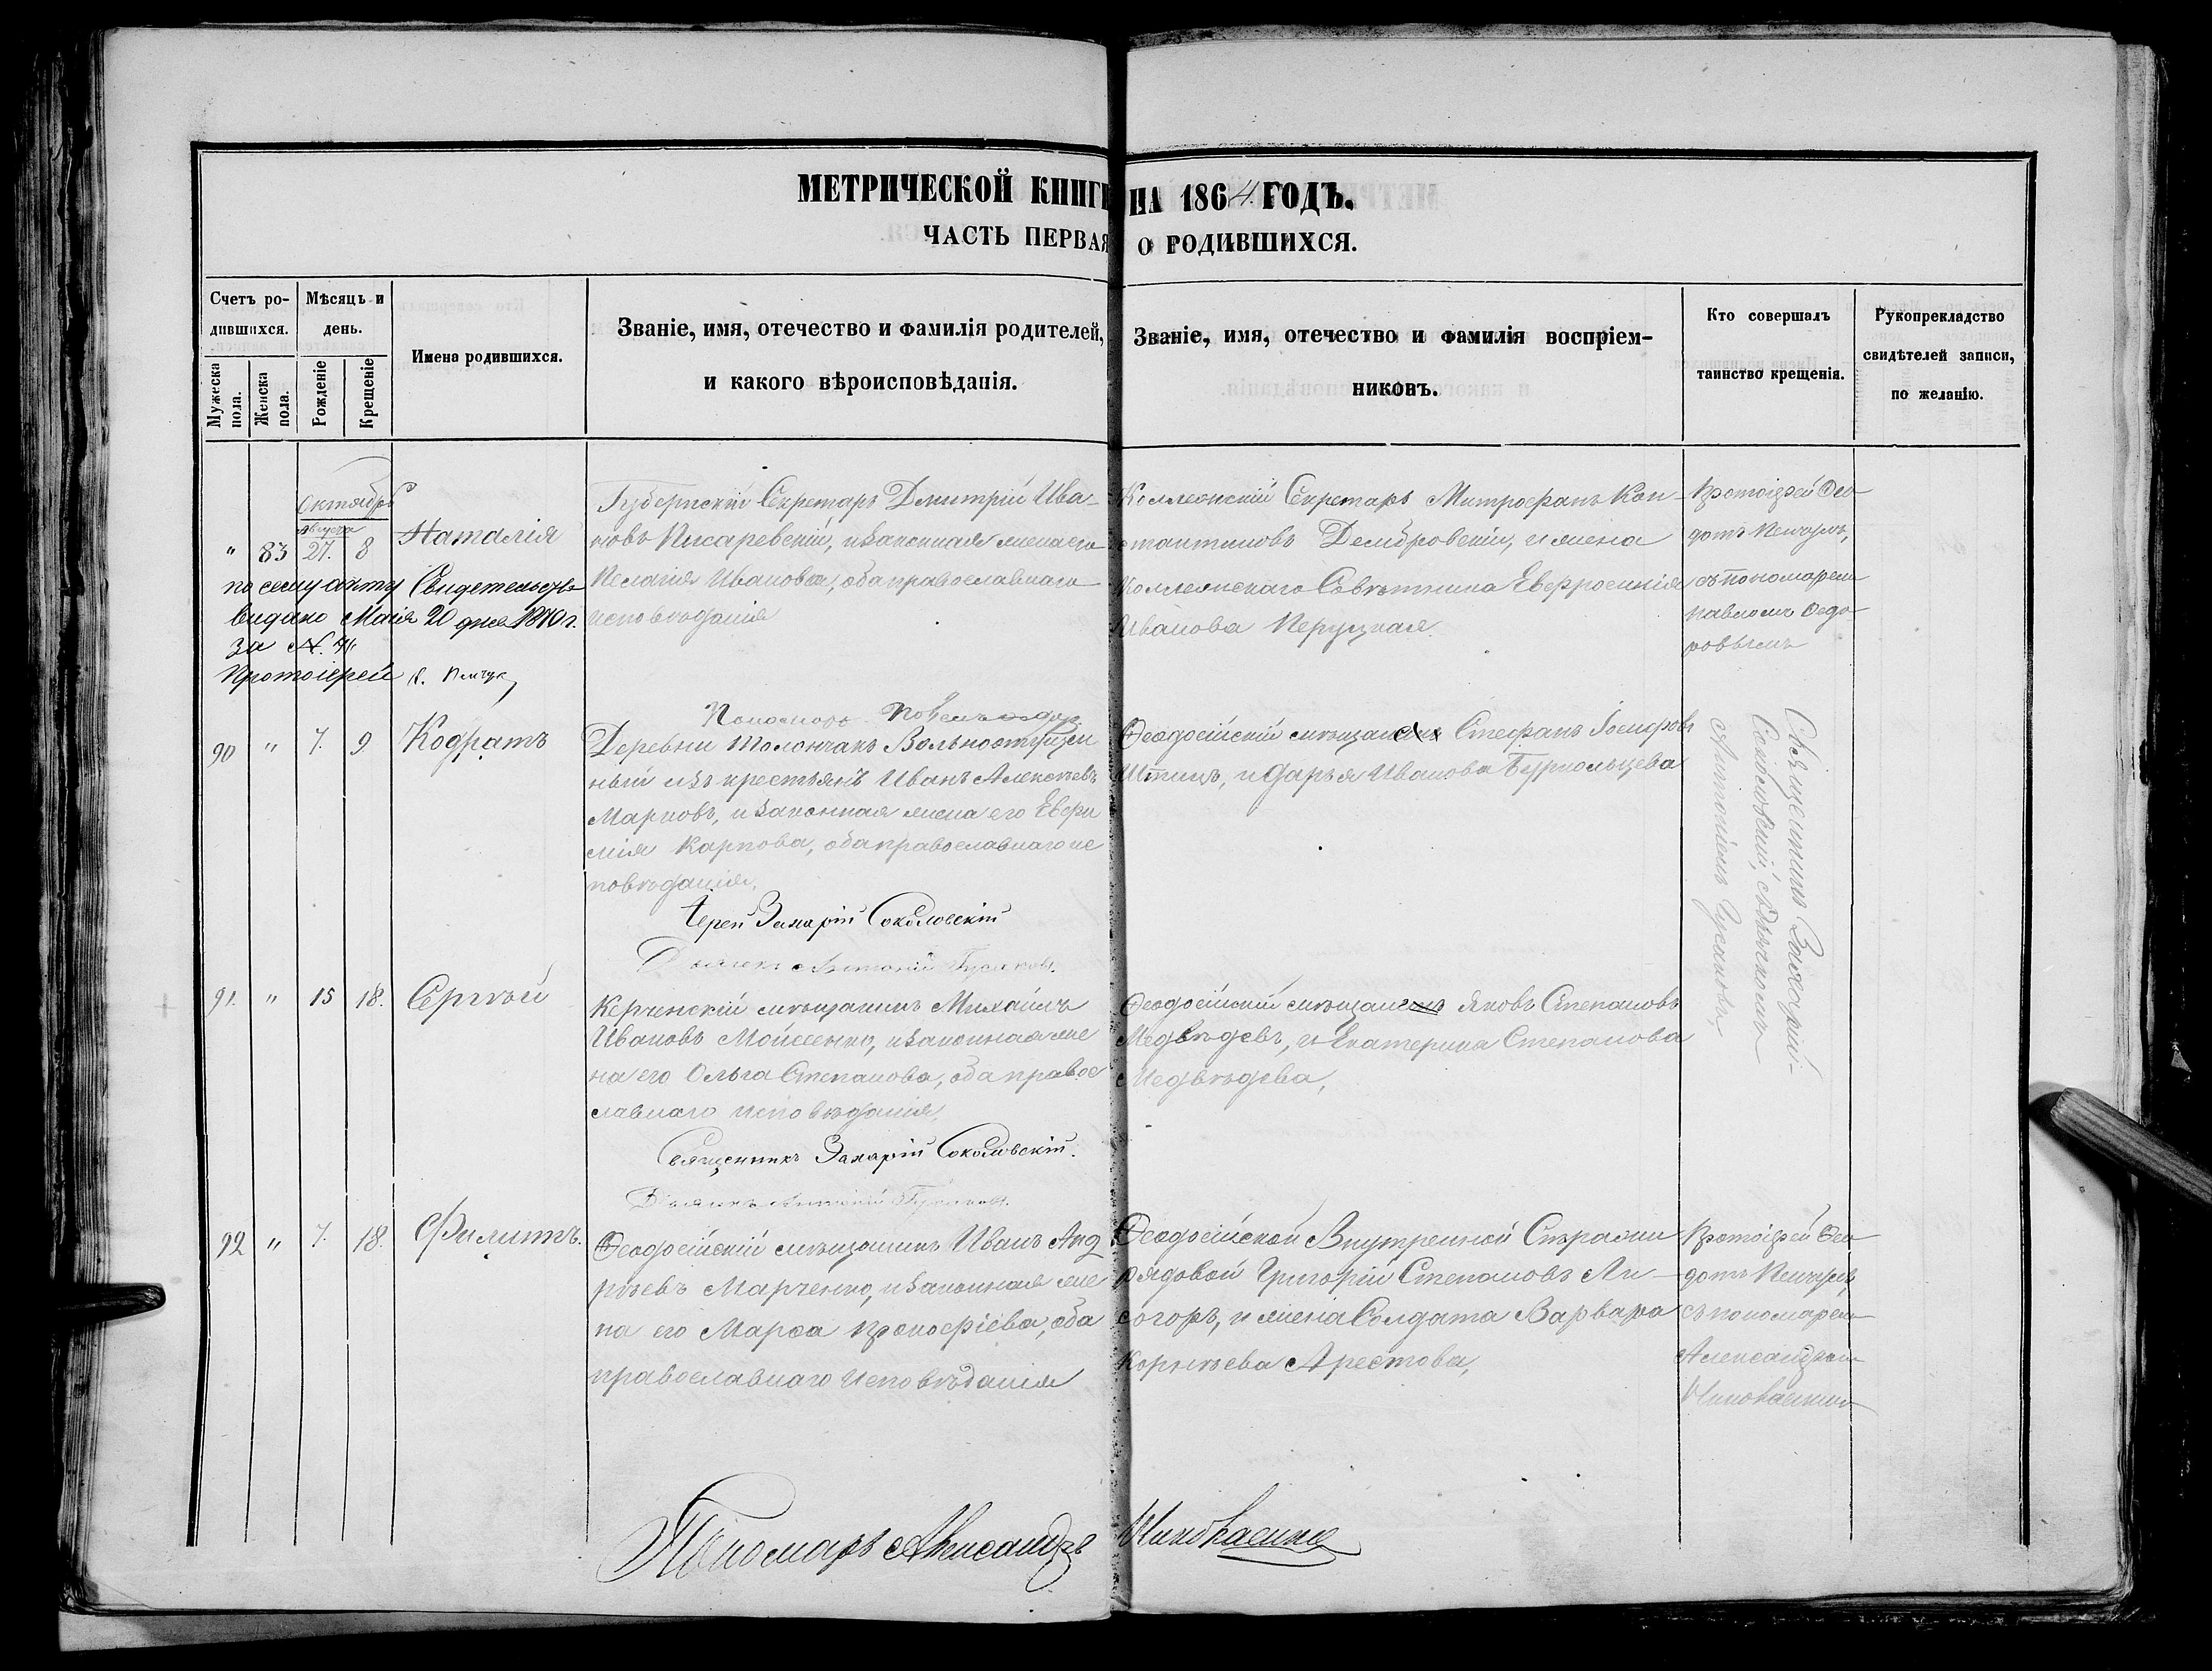 МЕТРИЧЕСКОЙ КНИГИ НА 1864 ГОДЪ.
ЧАСТЬ ПЕРВАЯ О РОДИВШИХСЯ.
Счетъ ро-
дившихся.
Мужеска пола.
Женска пола.
Мѣсяць и
день.
Рожденіе
Крещеніе
Имена родившихся.
Званіе, имя, отечество и фамилія родителей,
и какого вѣроисповѣданія.
Званіе, имя, отечество и фамилія воспріем-
никовъ.
Кто совершалъ
таинство крещенія.
Рукоприкладство
свидѣтелей записи,
по желанію.
Октябрь
Августа
" 83 27. 8 Наталія
по сему акту Свидетельство
видано Маія 20 дня 1870 г.
за №
Протоіерей
Губернскій Секретарь Дмитрій Ива-
новъ Писаревскій, и законная жена его
Пелагія Иванова, оба православнаго
исповѣданія
Коллежскій Секретарь Митрофанъ Кон-
стантиновъ Дембровскій, и жена
Коллежскаго Совѣтника Евфросинія
Иванова Перуцкая.
Протоіерей Фео-
дотъ
съ пономаремъ
Павломъ Федо-
ровымъ
Пономарь
90 " 7. 9 Кодратъ
Деревни Толончакъ Вольноотпущен
ный изъ крестьянъ Иванъ Алексѣевъ
Марковъ, и законная жена его Евфи
мія Карпова, оба православнаго ис
повѣданія,
Іерей Захарій Соколовскій
Дьячекъ Антоній Гусаковъ.
Феодосійскій мѣщанинъ Стефанъ Іосифовъ
и Дарья Иванова
Священникъ Захарій
Соколовскій, съ дьячкомъ
Антоніемъ Гусаковымъ
91. " 15 18. Сергѣй
Керченскій мѣщанинъ Михаилъ
Ивановъ Мойсеенко, и законная же
на его Ольга Степанова, оба правос
лавнаго исповѣданія,
Священникъ Захарій Соколовскій.
Дьячекъ Антоній Гусаковъ.
Феодосійскій мѣщанинъ Яковъ Степановъ
Медвѣдевъ, и Екатерина Степанова
Медвѣдева,
92 " 7. 18. Филиппъ.
Феодосійскій мѣщанинъ Иванъ Анд
рѣевъ Марченко, и законная же
на его Марѳа Прокофіева, оба
православнаго исповѣданія
Феодосійской Внутренной Стражи
рядовой Григорій Степановъ Ли-
согоръ, и жена Солдата Варвара
Корнѣева Арестова,
Протоіерей Фео-
дотъ
съ пономаремъ
Александромъ
Пономарь Александръ